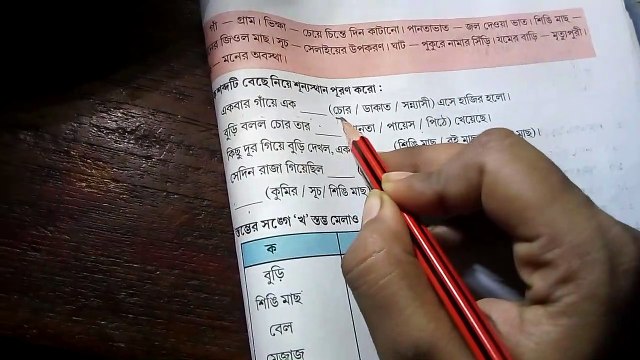 গাঁ — গ্রাম। ভিক্ষা — চেয়ে চিন্তে দিন কাটানো। পানতাভাত — জল দেওয়া ভাত। শিঙি মাছ —
জিওল মাছ। সূচ — সেলাইয়ের উপকরণ। ঘাট — পুকুরে নামার সিঁড়ি। যমের বাড়ি — মৃত্যুপুরী।
— মনের অবস্থা।
শব্দটি বেছে নিয়ে শূন্যস্থান পূরণ করো :
একবার গাঁয়ে এক ____ (চোর / ডাকাত / সন্ন্যাসী) এসে হাজির হলো।
বুড়ি বলল চোর তার ____ / পায়েস / পিঠে) খেয়েছে।
কিছু দূর গিয়ে বুড়ি দেখল, (শিঙি মাছ / বই
সেদিন রাজা গিয়েছিল ____
____ (কুমির / সূচ/ শিঙি মাছ
সঙ্গে 'খ' স্তম্ভ মেলাও
ক
বুড়ি
শিঙি মাছ
বেল
মেজাজ